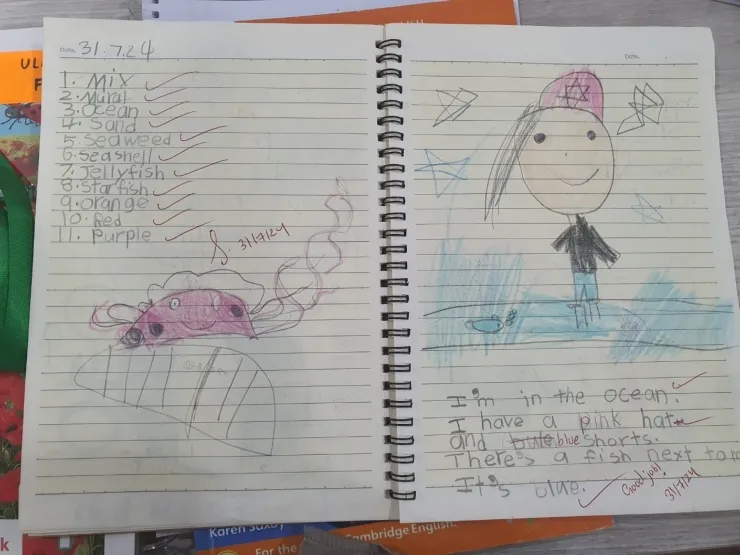 Date. 31.7.24
1. Mix
2. Mural
3. Ocean
4. Sand
5. Seaweed
6. Seashell
7. Jellyfish
8. Starfish
9. Orange
10. Red
11. Purple
31/7/24
Date.
I'm in the ocean.
I have a pink hat
and blue shorts.
There's a fish next to
It's blue.
Good job!
31/7/24
UL
F
k
Karen Saxby
For the
Cambridge English